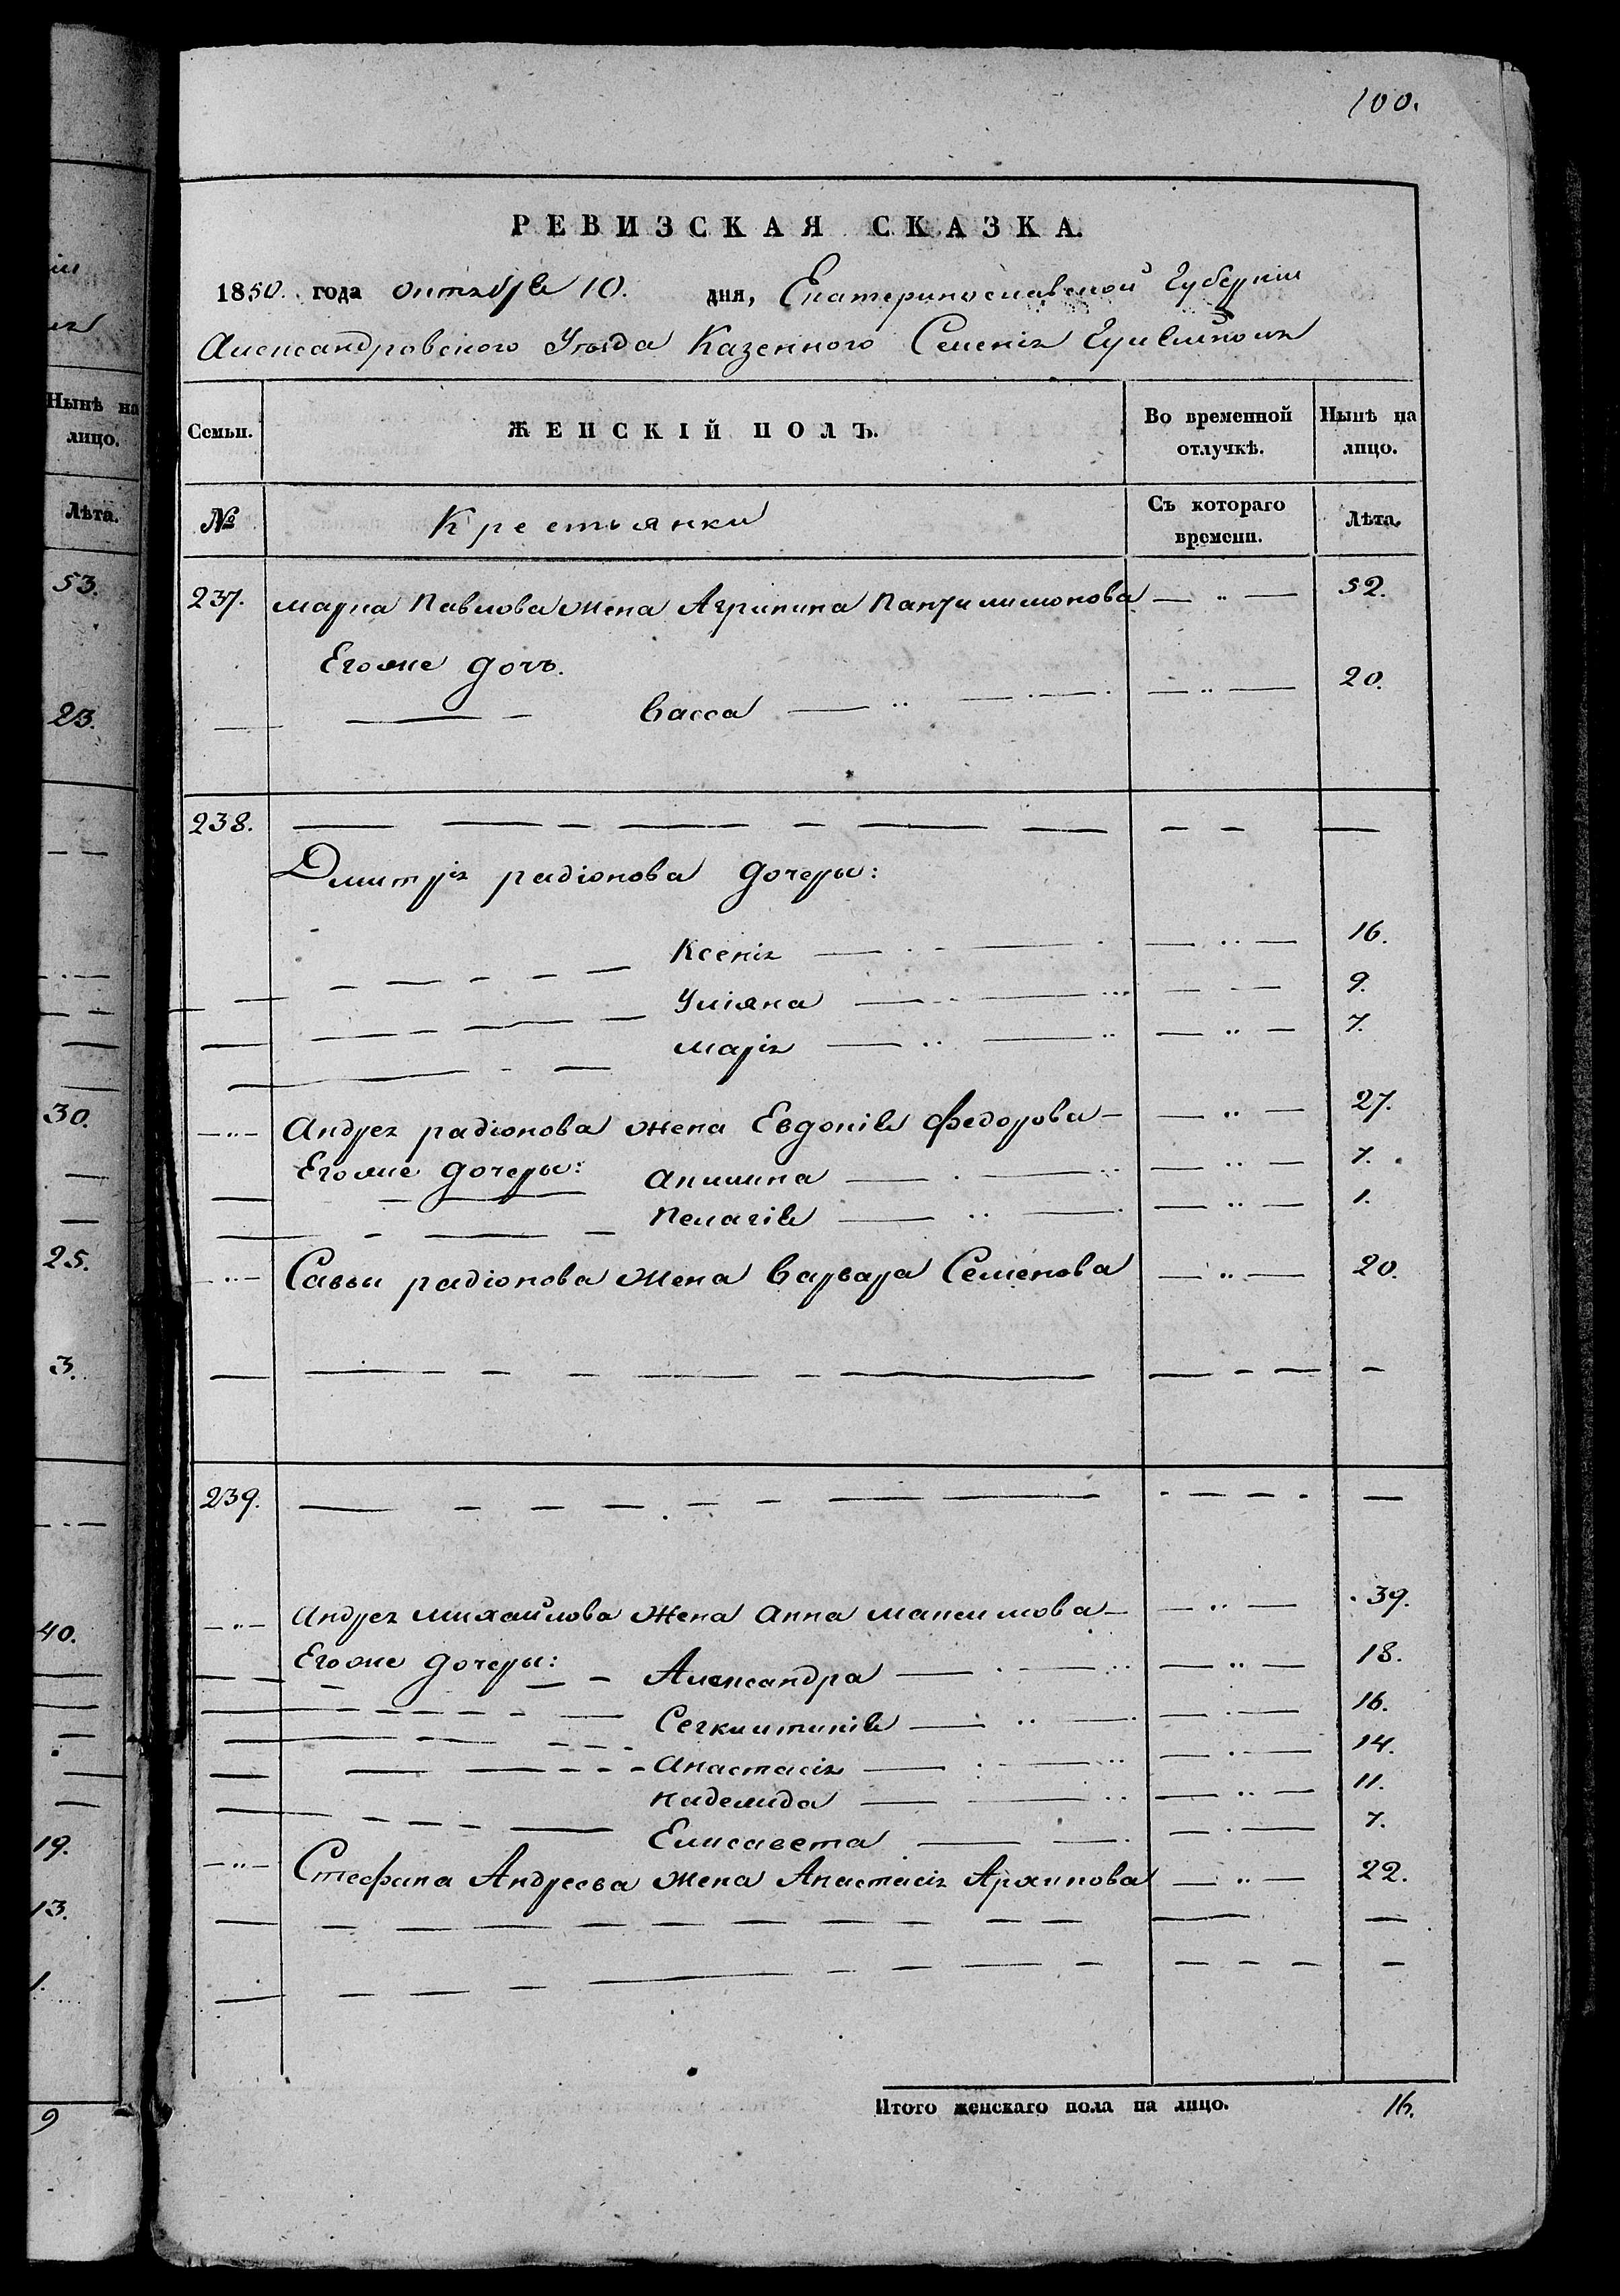 100.
РЕВИЗСКАЯ СКАЗКА.
1850. года октября 10. дня, Екатеринославской Губерніи
Александровского Уѣзда Казенного Селенія Гуляйполя
Семьи.
ЖЕНСКІЙ ПОЛЪ.
Во временной отлучкѣ.
Нынѣ на лицо.
№
Крестьянки
Съ котораго времени.
Лѣта.
237. Марка Павлова жена Агрипина Пантилимонова — „ — 52.
Егоже дочь.
Васса — „ — 20.
238.
Дмитрія радіонова дочеры:
Ксенія — „ — 16.
Уліяна — 9.
Марія — „ — 7.
— „ — Андрея радіонова жена Евдокія Федорова — „ — 27.
Егоже дочеры: Акилина — „ — 7.
Пелагія — „ — 1.
— „ — Саввы радіонова жена Варвара Семенова — „ — 20.
239.
— „ — Андрея Михайлова жена Анна Максимова — „ — 39.
Егоже дочеры: Александра — „ — 18.
16.
Анастасія — 14.
— „ — 11.
Елисавета — 7.
— „ — Стефана Андреева жена Анастасія Архипова — „ — 22.
Итого женскаго пола на лицо. 16.
Нынѣ на
лицо.
Лѣта.
53.
23.
30.
25.
3.
40.
19.
13.
1.
9